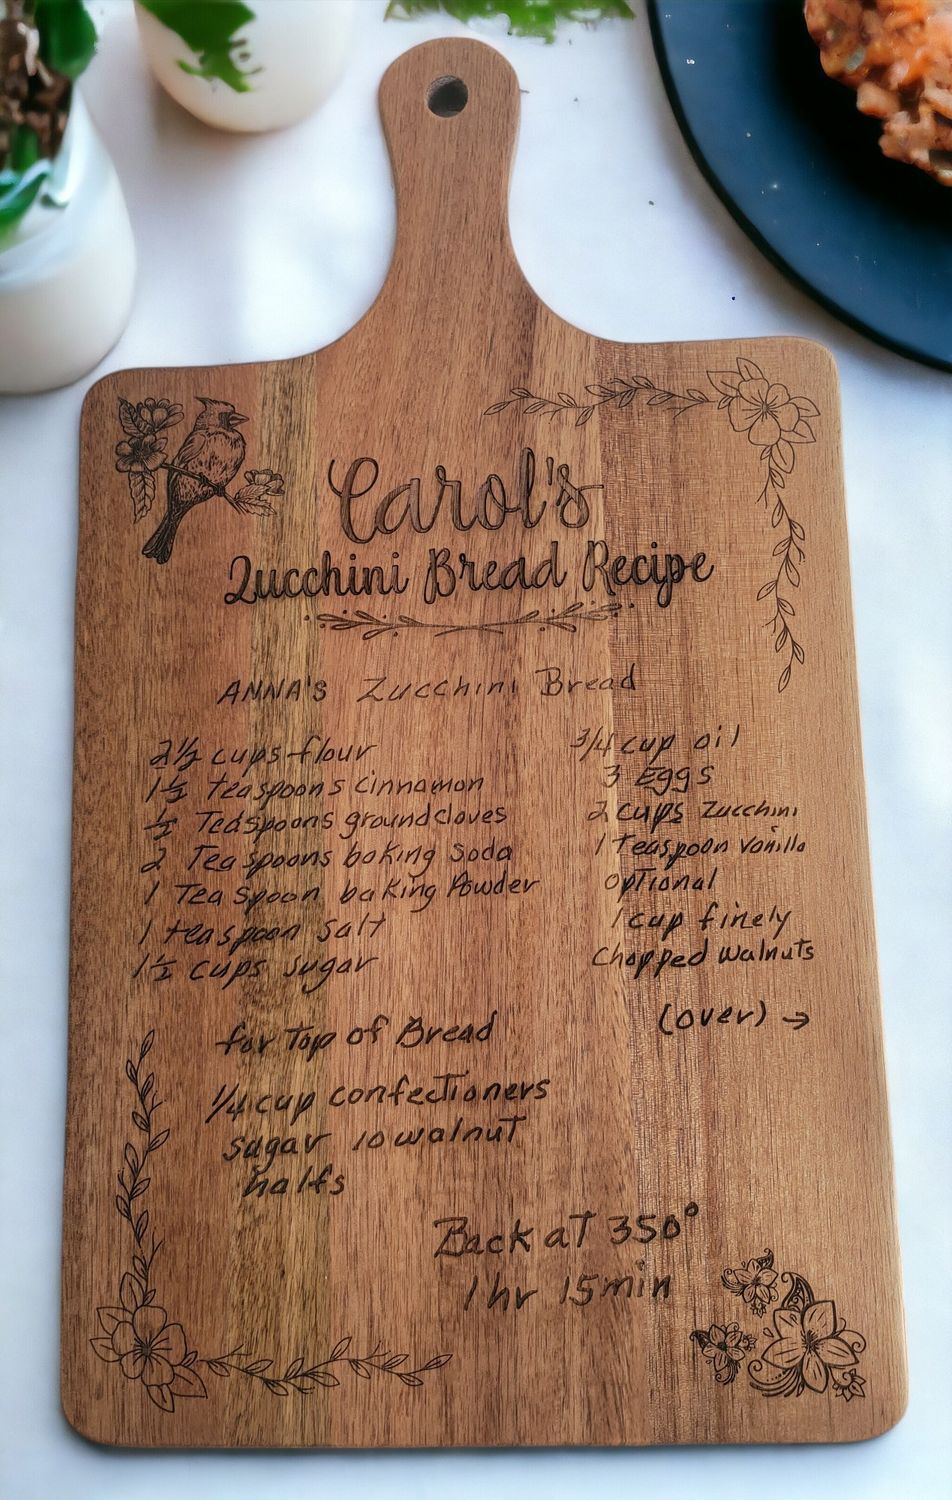 Carol's
Zucchini Bread Recipe
ANNA'S Zucchini Bread
2½ cups flour
1½ Teaspoons cinnamon
½ Teaspoons ground cloves
2 Teaspoons baking Soda
1 Tea Spoon baking Powder
1 teaspoon Salt
1½ cups sugar
3/4 cup oil
3 Eggs
2 cups zucchini
1 Teaspoon vanilla
opTional
1 cup finely
Chopped walnuts
(over) →
for Top of Bread
1/4 cup confecTioners
sugar 10 walnut
halfs
Back at 350°
1 hr 15 min